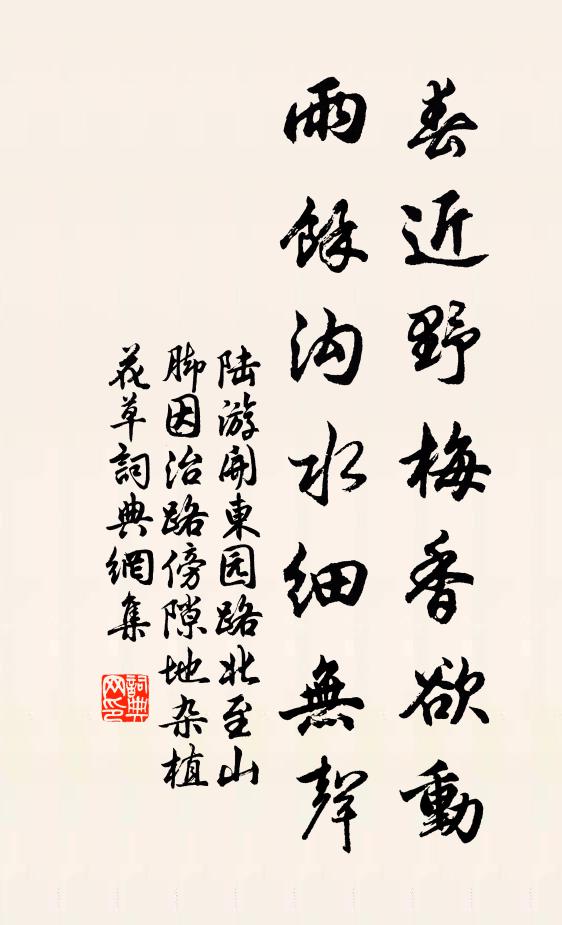 春近野梅香欲動
雨餘沟水細無聲
陆游開東园路北至山
脚因治路傍隙地杂植
花草詞典網集
詞典
网印